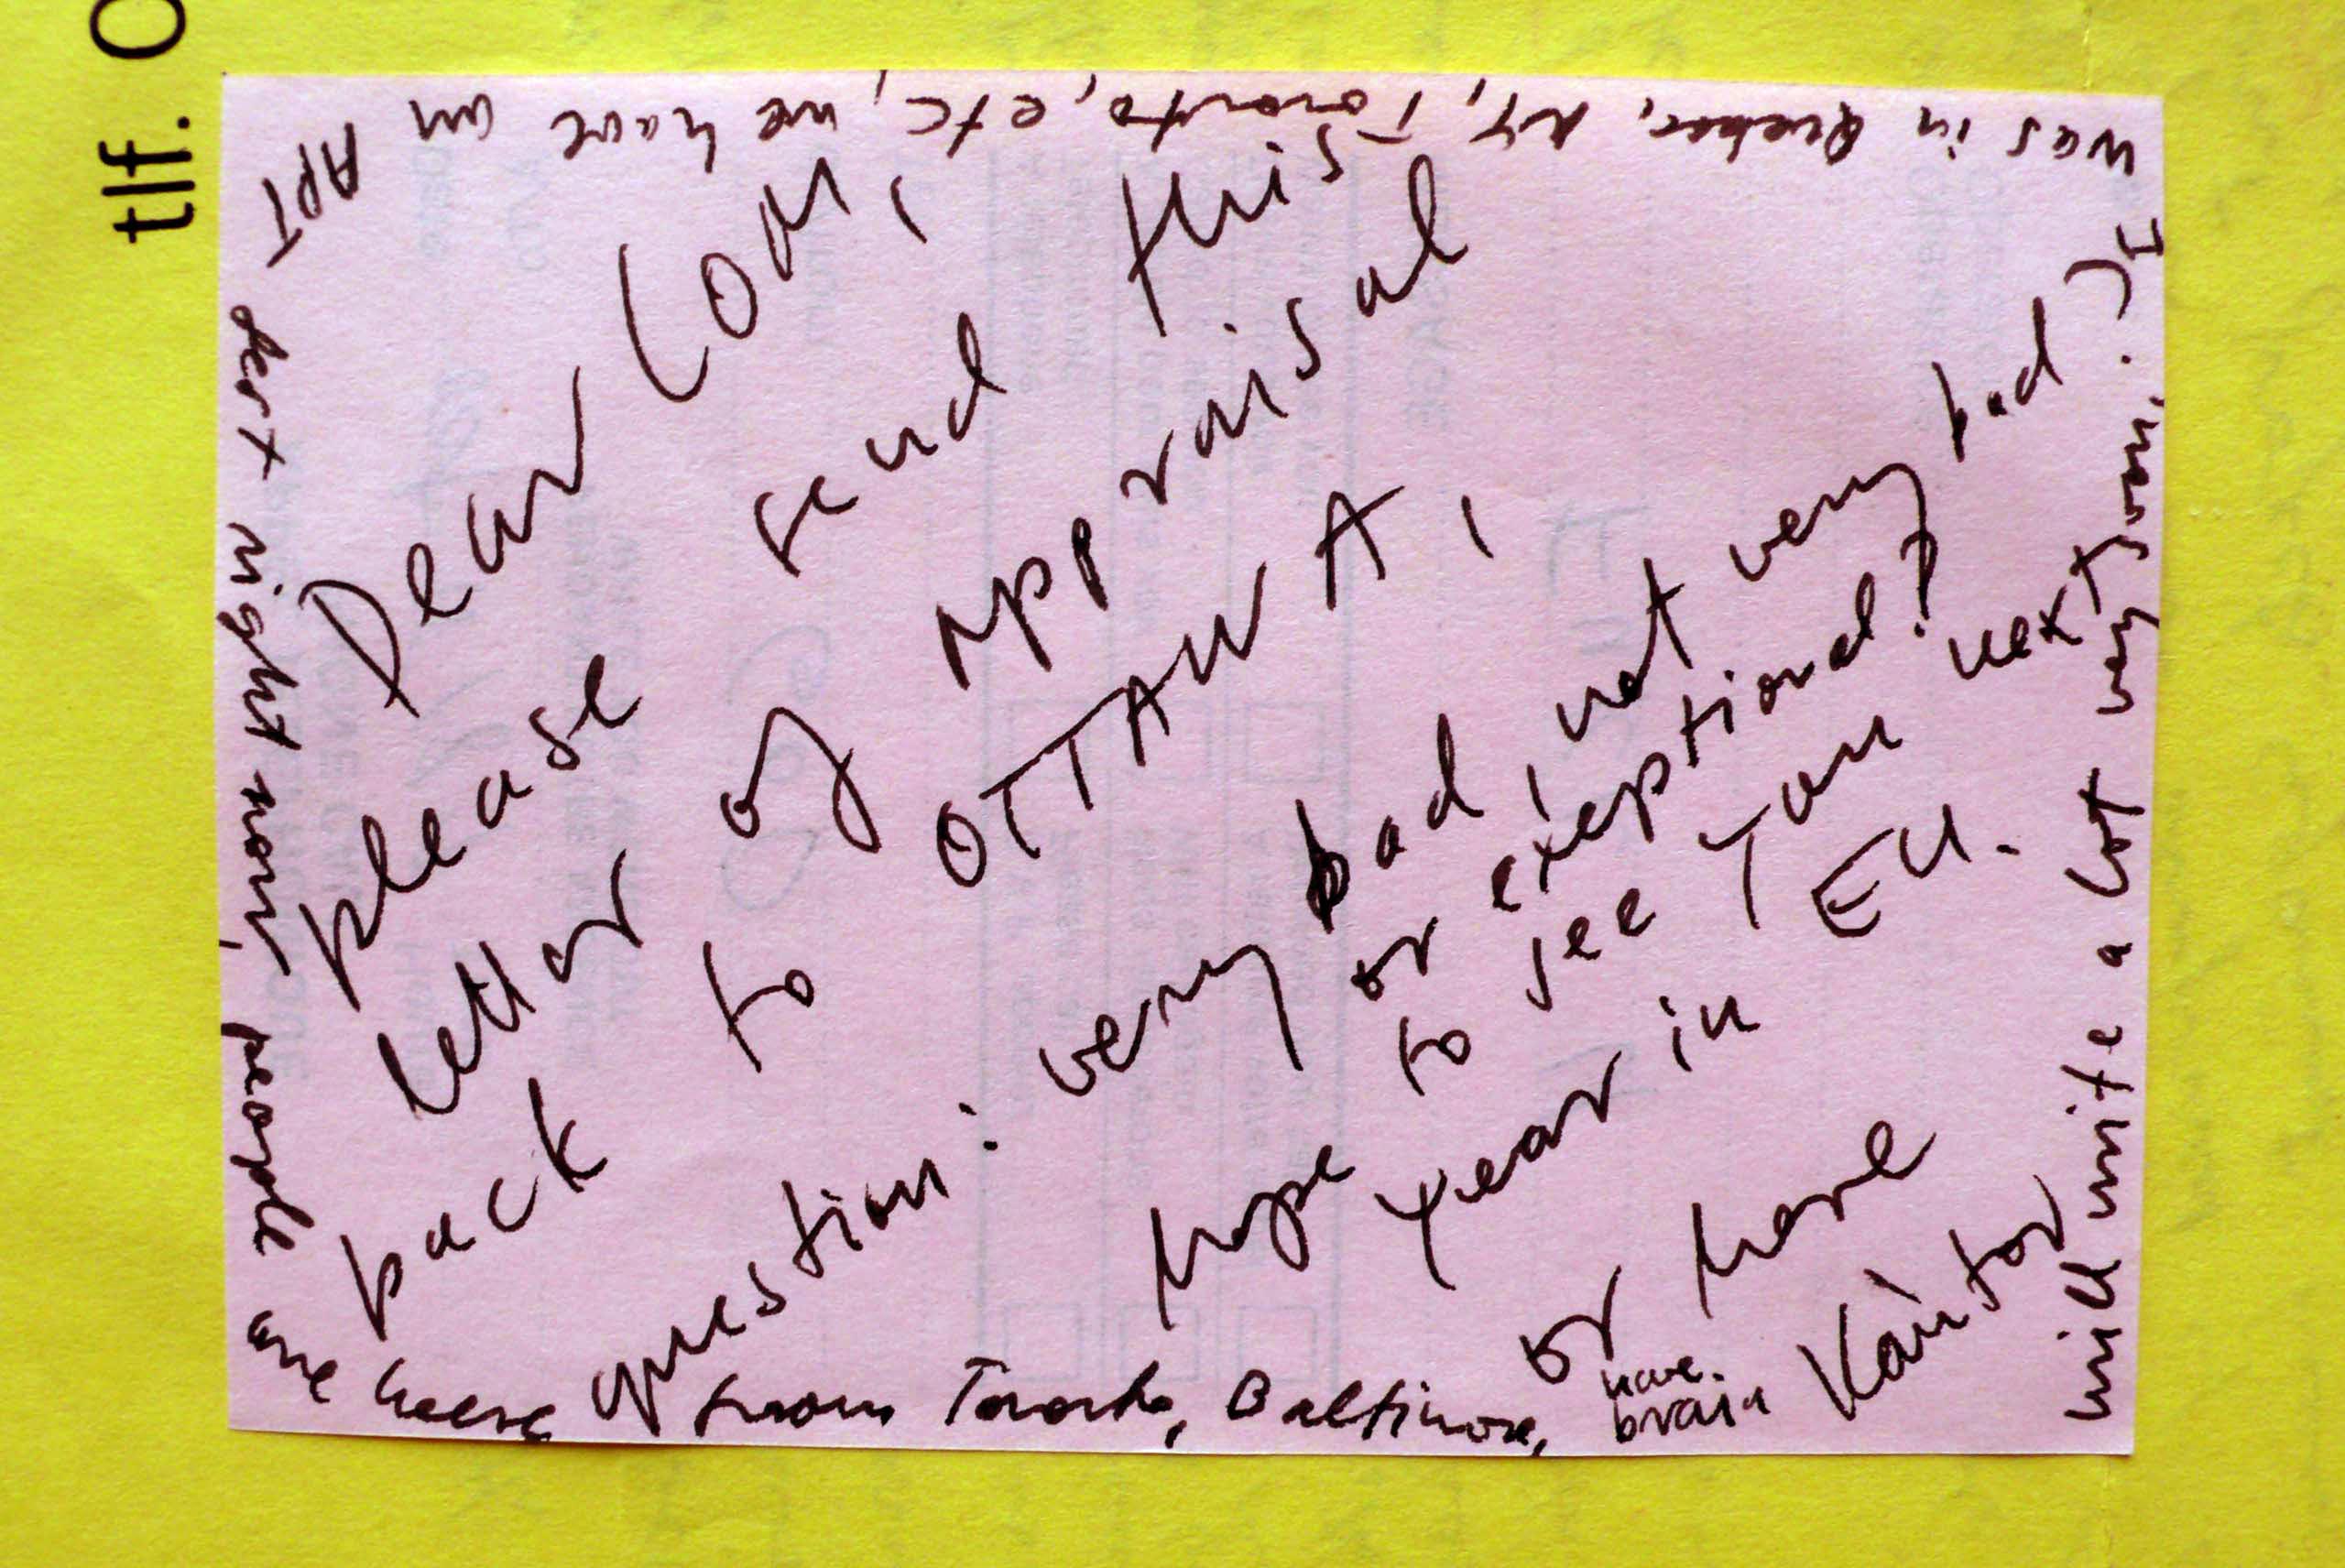 Dear Con,
please send this
letter of Appraisal
back to OTTAWA,
question: very bad, not very bad
or exeptional?)
hope to see You next
Year in EU.
or here
Kantor
will write a lot very soon. I
was in Quebec, NY, Toronto, etc, we have an
APT fest right now, people
are heere from Toronto, Baltimore,
brain
tlf.